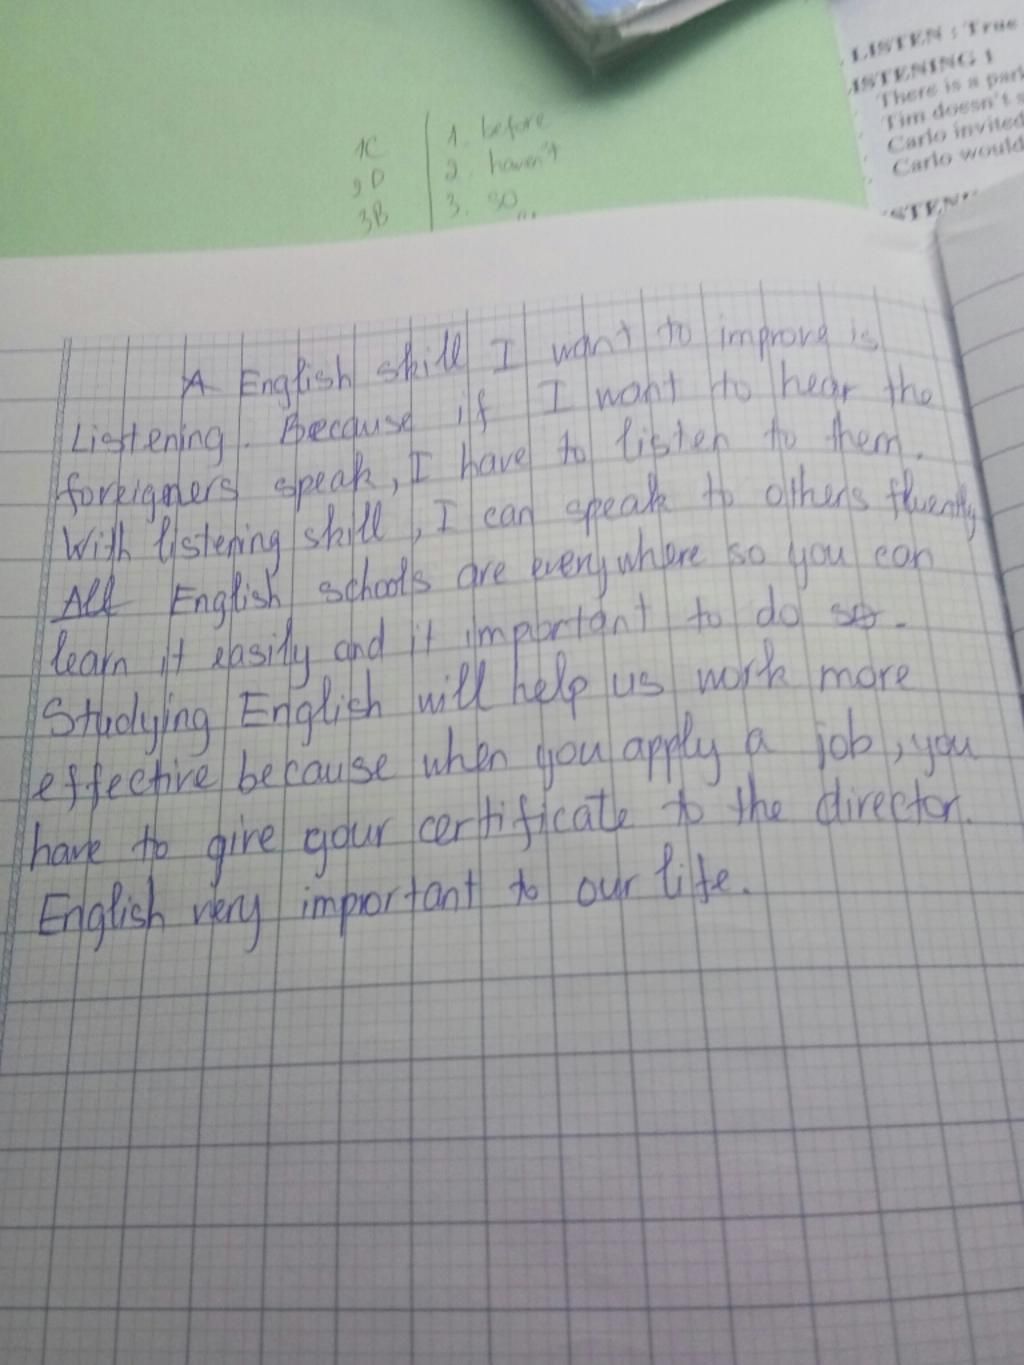 LISTEN : True
ISTENING 1
There is a
Tim doesn't
Carlo invited
Carlo would
1C 1. before
2D 2. haven't
3B 3. so
A English skill I want to improve is
Listening. Because if I want to hear the
foreigners speak, I have to listen to them.
With listening skill, I can speak to others fluently
All English schools are everywhere so you can
learn it easily and it important to do so.
Studying English will help us work more
effective because when you apply a job, you
have to give your certificate to the director.
English very important to our life.